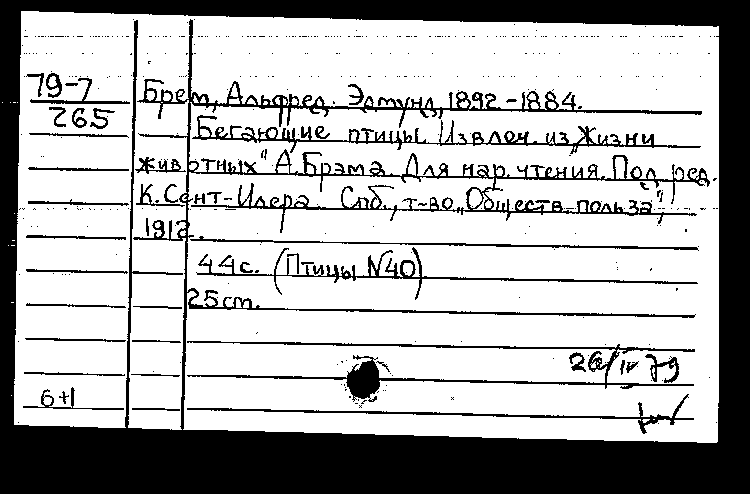 79-7
265
Брем, Альфред. Эдмунд, 1892-1884.
Бегающие птицы. Извлеч. из „Жизни
животных" А. Брэма. Для нар. чтения. Под ред.
К. Сент-Илера. Спб., т-во „Обществ. польза",
1912.
44с. (Птицы №40)
25см.
26/IV 79
6+1